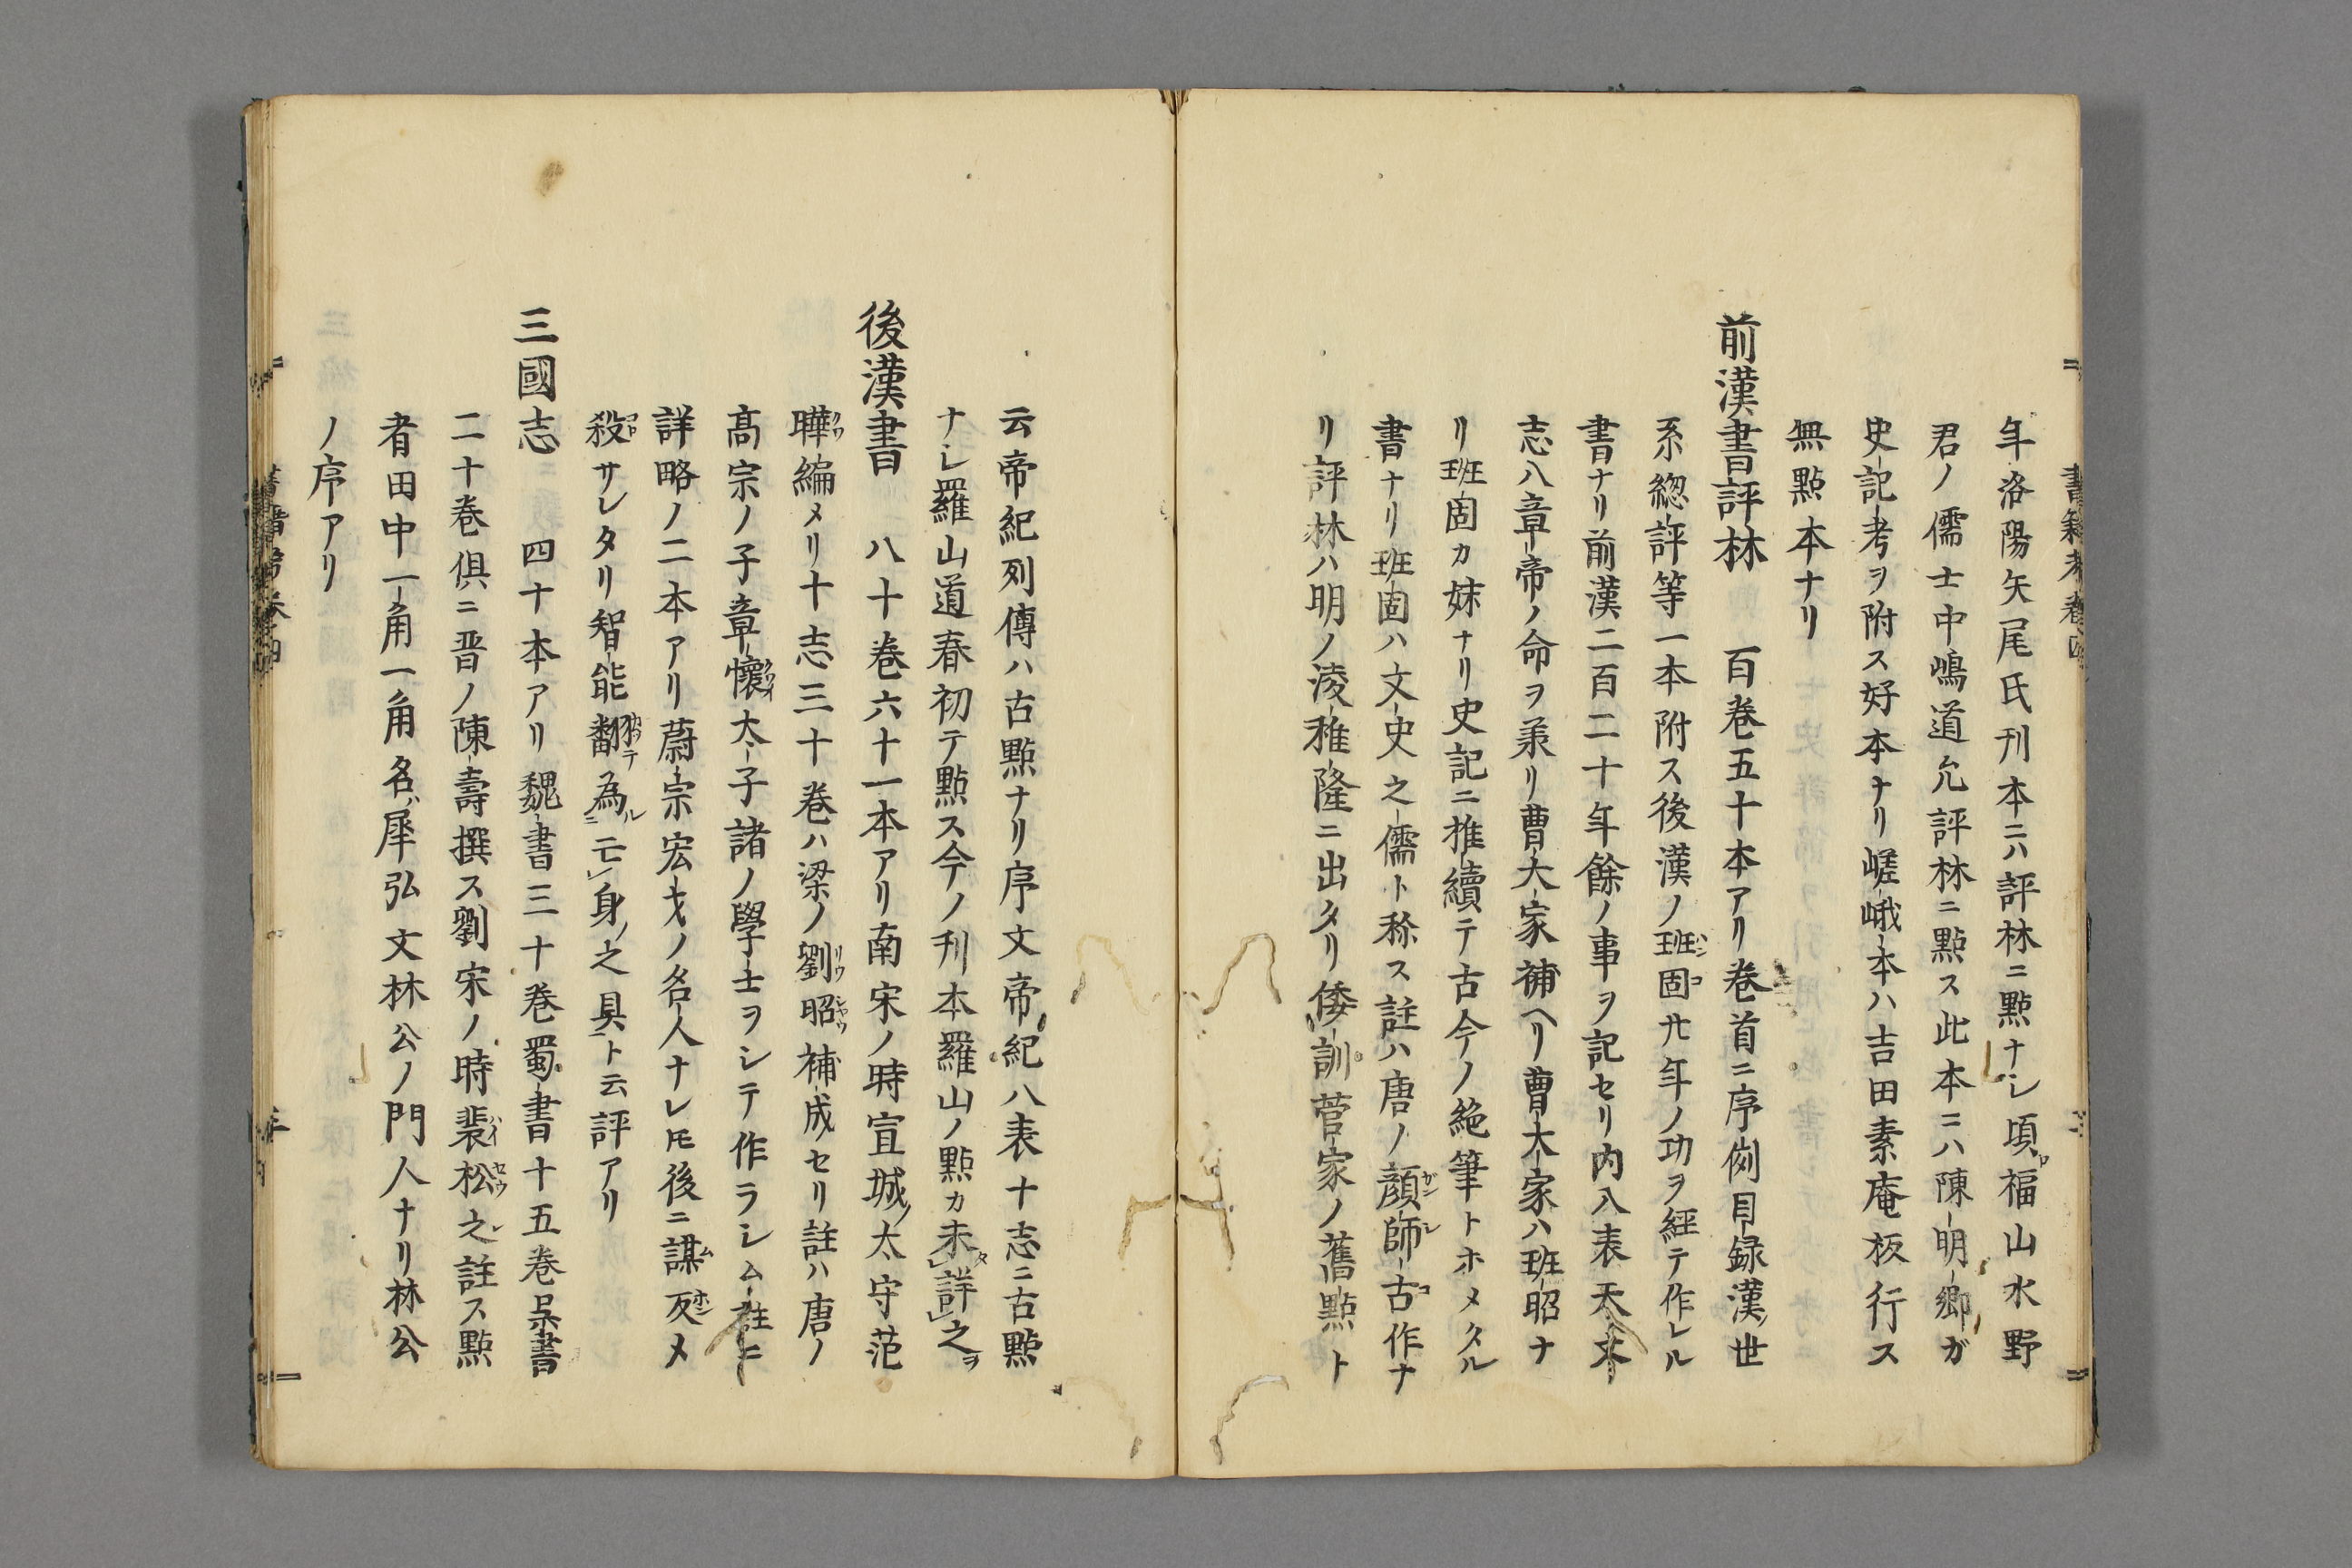 年洛陽矢尾氏刊本ニハ評林ニ點ナシ頃福山水野
君ノ儒士中嶋道允評林ニ點ス此本ニハ陳明郷ガ
史記考ヲ附ス好本ナリ嵯峨本ハ吉田素庵板行ス
無點本ナリ
前漢書評林 百卷五十本アリ卷首ニ序例目録漢ノ世
系総評等一本附ス後漢ノ班固廾年ノ功ヲ經テ作レル
書ナリ前漢二百二十年餘ノ事ヲ記セリ内八表天文
志八章帝ノ命ヲ承リ曹大家補ヘリ曹大家ハ班昭ナ
リ班固カ妹ナリ史記ニ推續テ古今ノ絶筆トホメタル
書ナリ班固ハ文史之儒ト称ス註ハ唐ノ顔師古作ナ
リ評林ハ明ノ淩稚隆ニ出タリ倭訓菅家ノ舊點ト
云帝紀列傳ハ古點ナリ序文帝紀八表十志ニ古點
ナシ羅山道春初テ點ス今ノ刊本羅山ノ點カ未詳之ヲ
後漢書 八十卷六十一本アリ南宋ノ時宣城ノ太守范
曄編メリ十志三十卷ハ梁ノ劉昭補成セリ註ハ唐ノ
高宗ノ子章懷太子諸ノ學士ヲシテ作ラシム註ニ
詳略ノ二本アリ蔚宗宏才ノ名人ナレ𪜈後ニ謀反メ
殺サレタリ智能翻為亡身之具ト云評アリ
三國志 四十本アリ魏書三十卷蜀書十五卷呉書
二十卷倶ニ晋ノ陳壽撰ス劉宋ノ時裴松之註ス點
者田中一角一角名ハ犀弘文林公ノ門人ナリ林公
ノ序アリ